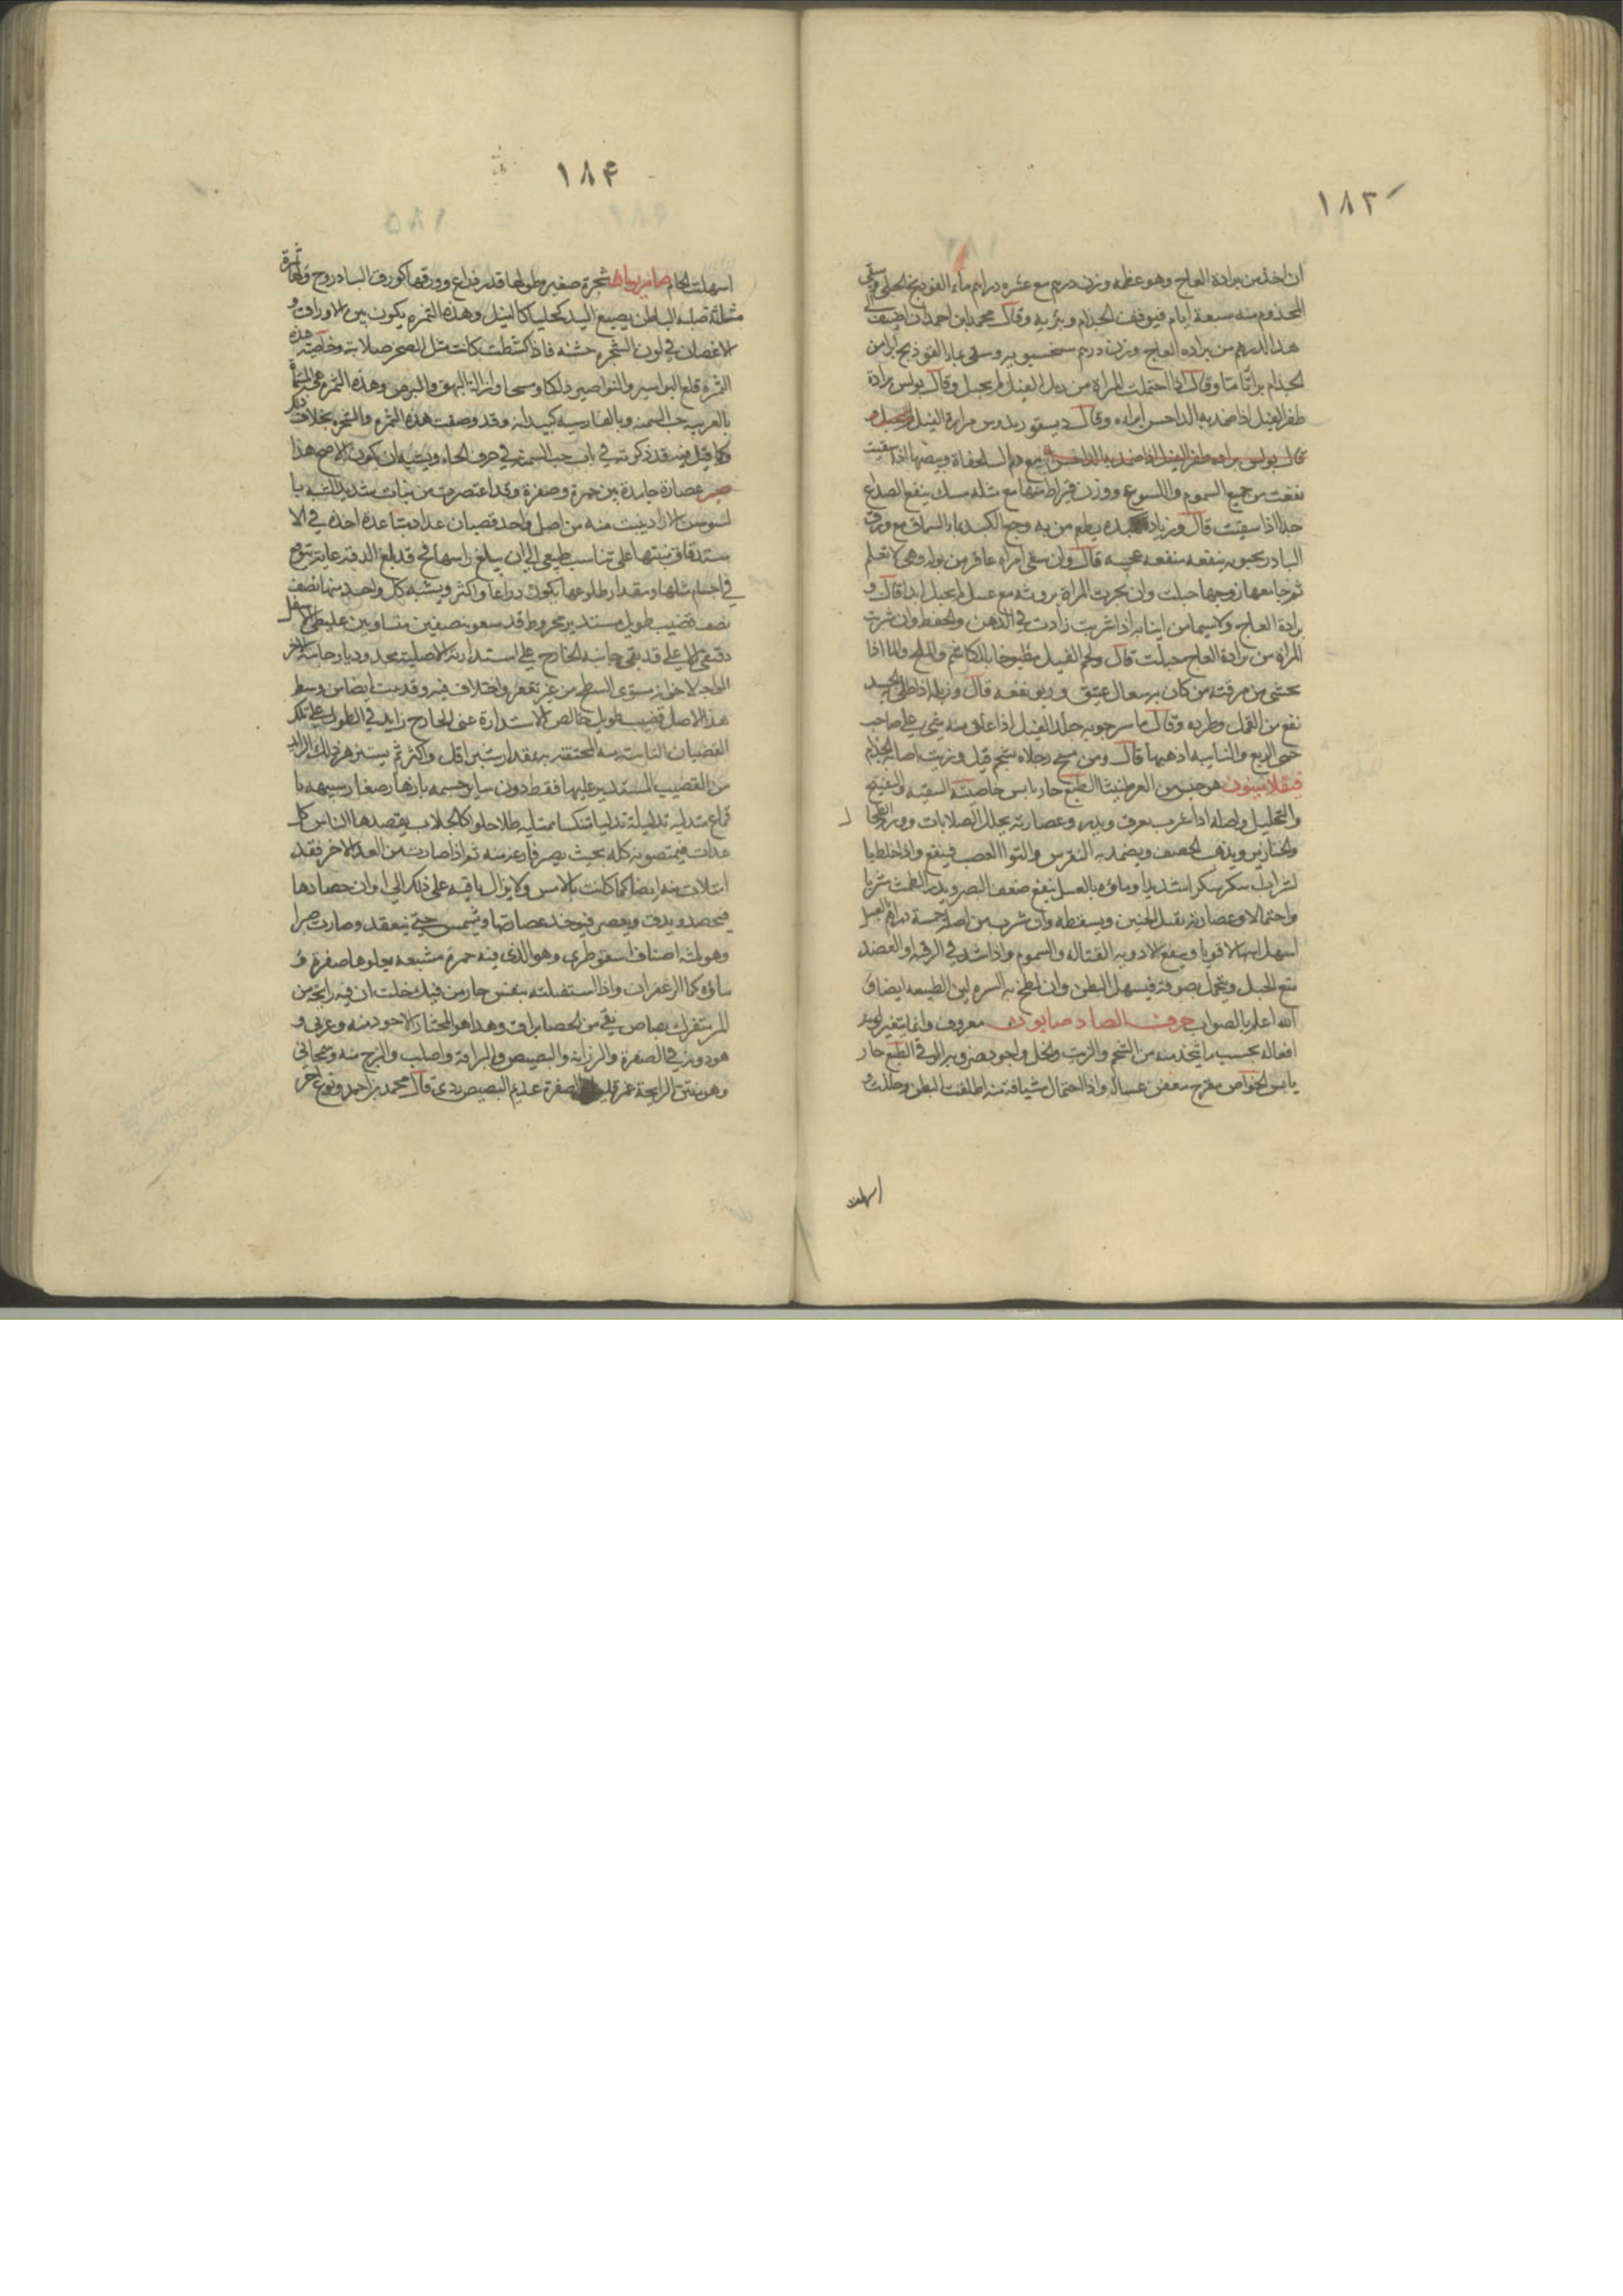 ١٨٣
ان اخذ من برادة العاج وهو عظمه وزن درهم مع عشره دراهم ماء الفوذنج الجبلي وسقي
المجذوم منه سبعة ايام فيوقف الجذام ويبريه وقال محمد بن احمد ان اضيف الى
هذا الدرهم من براده العاج وزن درهم وسقي بماء الفوذنج ابرا من
الجذام وقال اذا احتملت المراة من زبل الفيل لم تحبل وقال بولس برادة
ظفر الفيل اذا ضمد به الداحس ابراه وقال ديسقوريدوس مرارة الفيل
قال بولس براده ظفر الفيل اذا ضمد به الداحس مع دم السلحفاة وبيضها اذا سقيت
نفعت من جميع السموم واللسوع ووزن قيراط منها مع مثله مسك ينفع الصداع
جدا اذا سقيت قال وزيادة كبده يطعم من به وجع الكبد بماء السماق مع ورق
البادرنجبويه ينفعه منفعه عجيبه قال وان سقي امراة عاقر من بوله وهي لا تعلم
ثم جامعها زوجها حبلت وان بخرت المراة بروثه مع عسل لم تحبل ابدا قال و
برادة العاج ولاسيما من انيابه اذا شربت زادت في الذهن والحفظ وان شربت
المراة من برادة العاج حبلت قال ولحم الفيل مطبوخا بالماء والملح اذا
تحسى من مرقته من كان به سعال عتيق وربو نفعه قال وزبله اذا طلي به الجسد
نفع من القمل وطرده وقال ماسرجويه جلد الفيل اذا علق منه شي على صاحب
حمى الربع والنايبه اذهبها قال ومن مسح رجلاه بشحم فيل وزيت اصابه الجذام
هو جنس من العرطنيثا الطبع حار يابس خاصيته التنقيه والتفتيح
والتحليل واصله اذا شرب يعرق ويدر وعصارته يحلل الصلابات وورم الطحال
والخنازير ويذهب الحصف ويضمد به النقرس والتوا العصب فينفع واذا خلط با
لشراب اسكر سكرا شديدا وماؤه بالعسل ينفع ضعف البصر ويدر الطمث شربا
واحتمالا وعصارته يقتل الجنين ويسقطه وان شرب من اصله خمسة دراهم بالعسل
اسهل اسهالا قويا وينفع الادويه القتاله والسموم واذا شد في الرقبه والعضد
منع الحبل ويحتمل بصوفه فيسهل البطن وان لطخ به السره لين الطبيعه ايضا و
الله اعلم بالصواب حرف الصاد صابون معروف وانما يتغير لونه
افعاله بحسب ما يتخذ منه من الشحم والزيت والخل واجوده الرقي الطبع حار
يابس الخواص مقرح معفن غسال واذا احتمل شيافة منه اطلقت البطن وحللت و
اسهلت
١٨٤
اسهلت الخام صامريوما شجرة صغيره طولها قدر ذراع وورقها كورق البادروج ولها ثمرة
مثلثة صلبة الباطن يصبغ اليد كحليا كالنيل وهذه الثمره يكون بين الاوراق و
الاغصان في لون الشجره خشنه فاذا كشطت كانت مثل الصخر صلابة وخاصية هذه
الثمرة قلع البواسير والنواصير ذلكا ومسحا وازالة البهق والبرص وهذه الثمره هي المسماة
بالعربيه حب السمنه وبالفارسيه كبيدانه وقد وصفت هذه الثمره والشجره بخلاف ذلك
وكما قيل فيه قد ذكرته في باب حب السمنه في حرف الحاء ويشبه ان يكون الاصح هذا
صبر عصارة جامدة بين حمرة وصفرة وقد اعتصرت من نبات شديد الشبه با
لسوسن الازاد ينبت منه من اصل واحد قضبان عدة اخذه في الا
ستدقاق منبتها على تناسب طبيعي الى ان يبلغ راسها في
في اجسام مثلها ومقدار طلوعها يكون ذراعا واكثر ويشبه كل واحد منها نصف
نصف قضيب طويل مستدير مخروط قد شق بنصفين متساويين غليظ الاسفل
دقيق الاعلى قد بقي جانبه الخارج على استدارته الاصلية وجانبه الاخر
الداخل مستوي السطح من غير تقعير واختلاف فيه وقد ينبت ايضا من وسط
هذا الاصل قضيب طويل خالص الاستدارة عن الخارج زايد في الطول على تلك
القضبان النابتة منه المحتفة به بمقدار شبر اقل واكثر ثم يستزهر ذلك الزايد
من القضيب المستدير عليها فقط دون ساير جسمه بازهار صغار شبيهه با
قماع متدليه ممتليه طلا حلوا كالجلاب يقصدها الناس كل
غدات فيمتصونه كله بحيث يصير فارغة منه ثم اذا صارت من الغد الاخر فقد
امتلات منه ايضا كما كانت بالامس ولا يزال باقيه على ذلك الى اوان حصادها
فيحصد ويدق ويعصر فيوخذ عصارتها وتشمس حتى ينعقد وصارت صبرا
وهو ثلثة اصناف اسقوطري وهو الذي فيه حمرة مشبعه يعلوها صفرة و
ماؤه كماء الزعفران واذا استقبلته بنفس حار من فيك خلت ان فيه رايحة من
المر متفرك بصاص نقي من الحصا براق وهذا هو المختار الاجود منه وعربي و
هو دونه في الصفرة والرزانة والبصيص والبراقة واصلب والزج منه وسمجاني
وهو منتن الرايحة الصفرة عديم البصيص ردي قال محمد بن احمد ونوع اخر